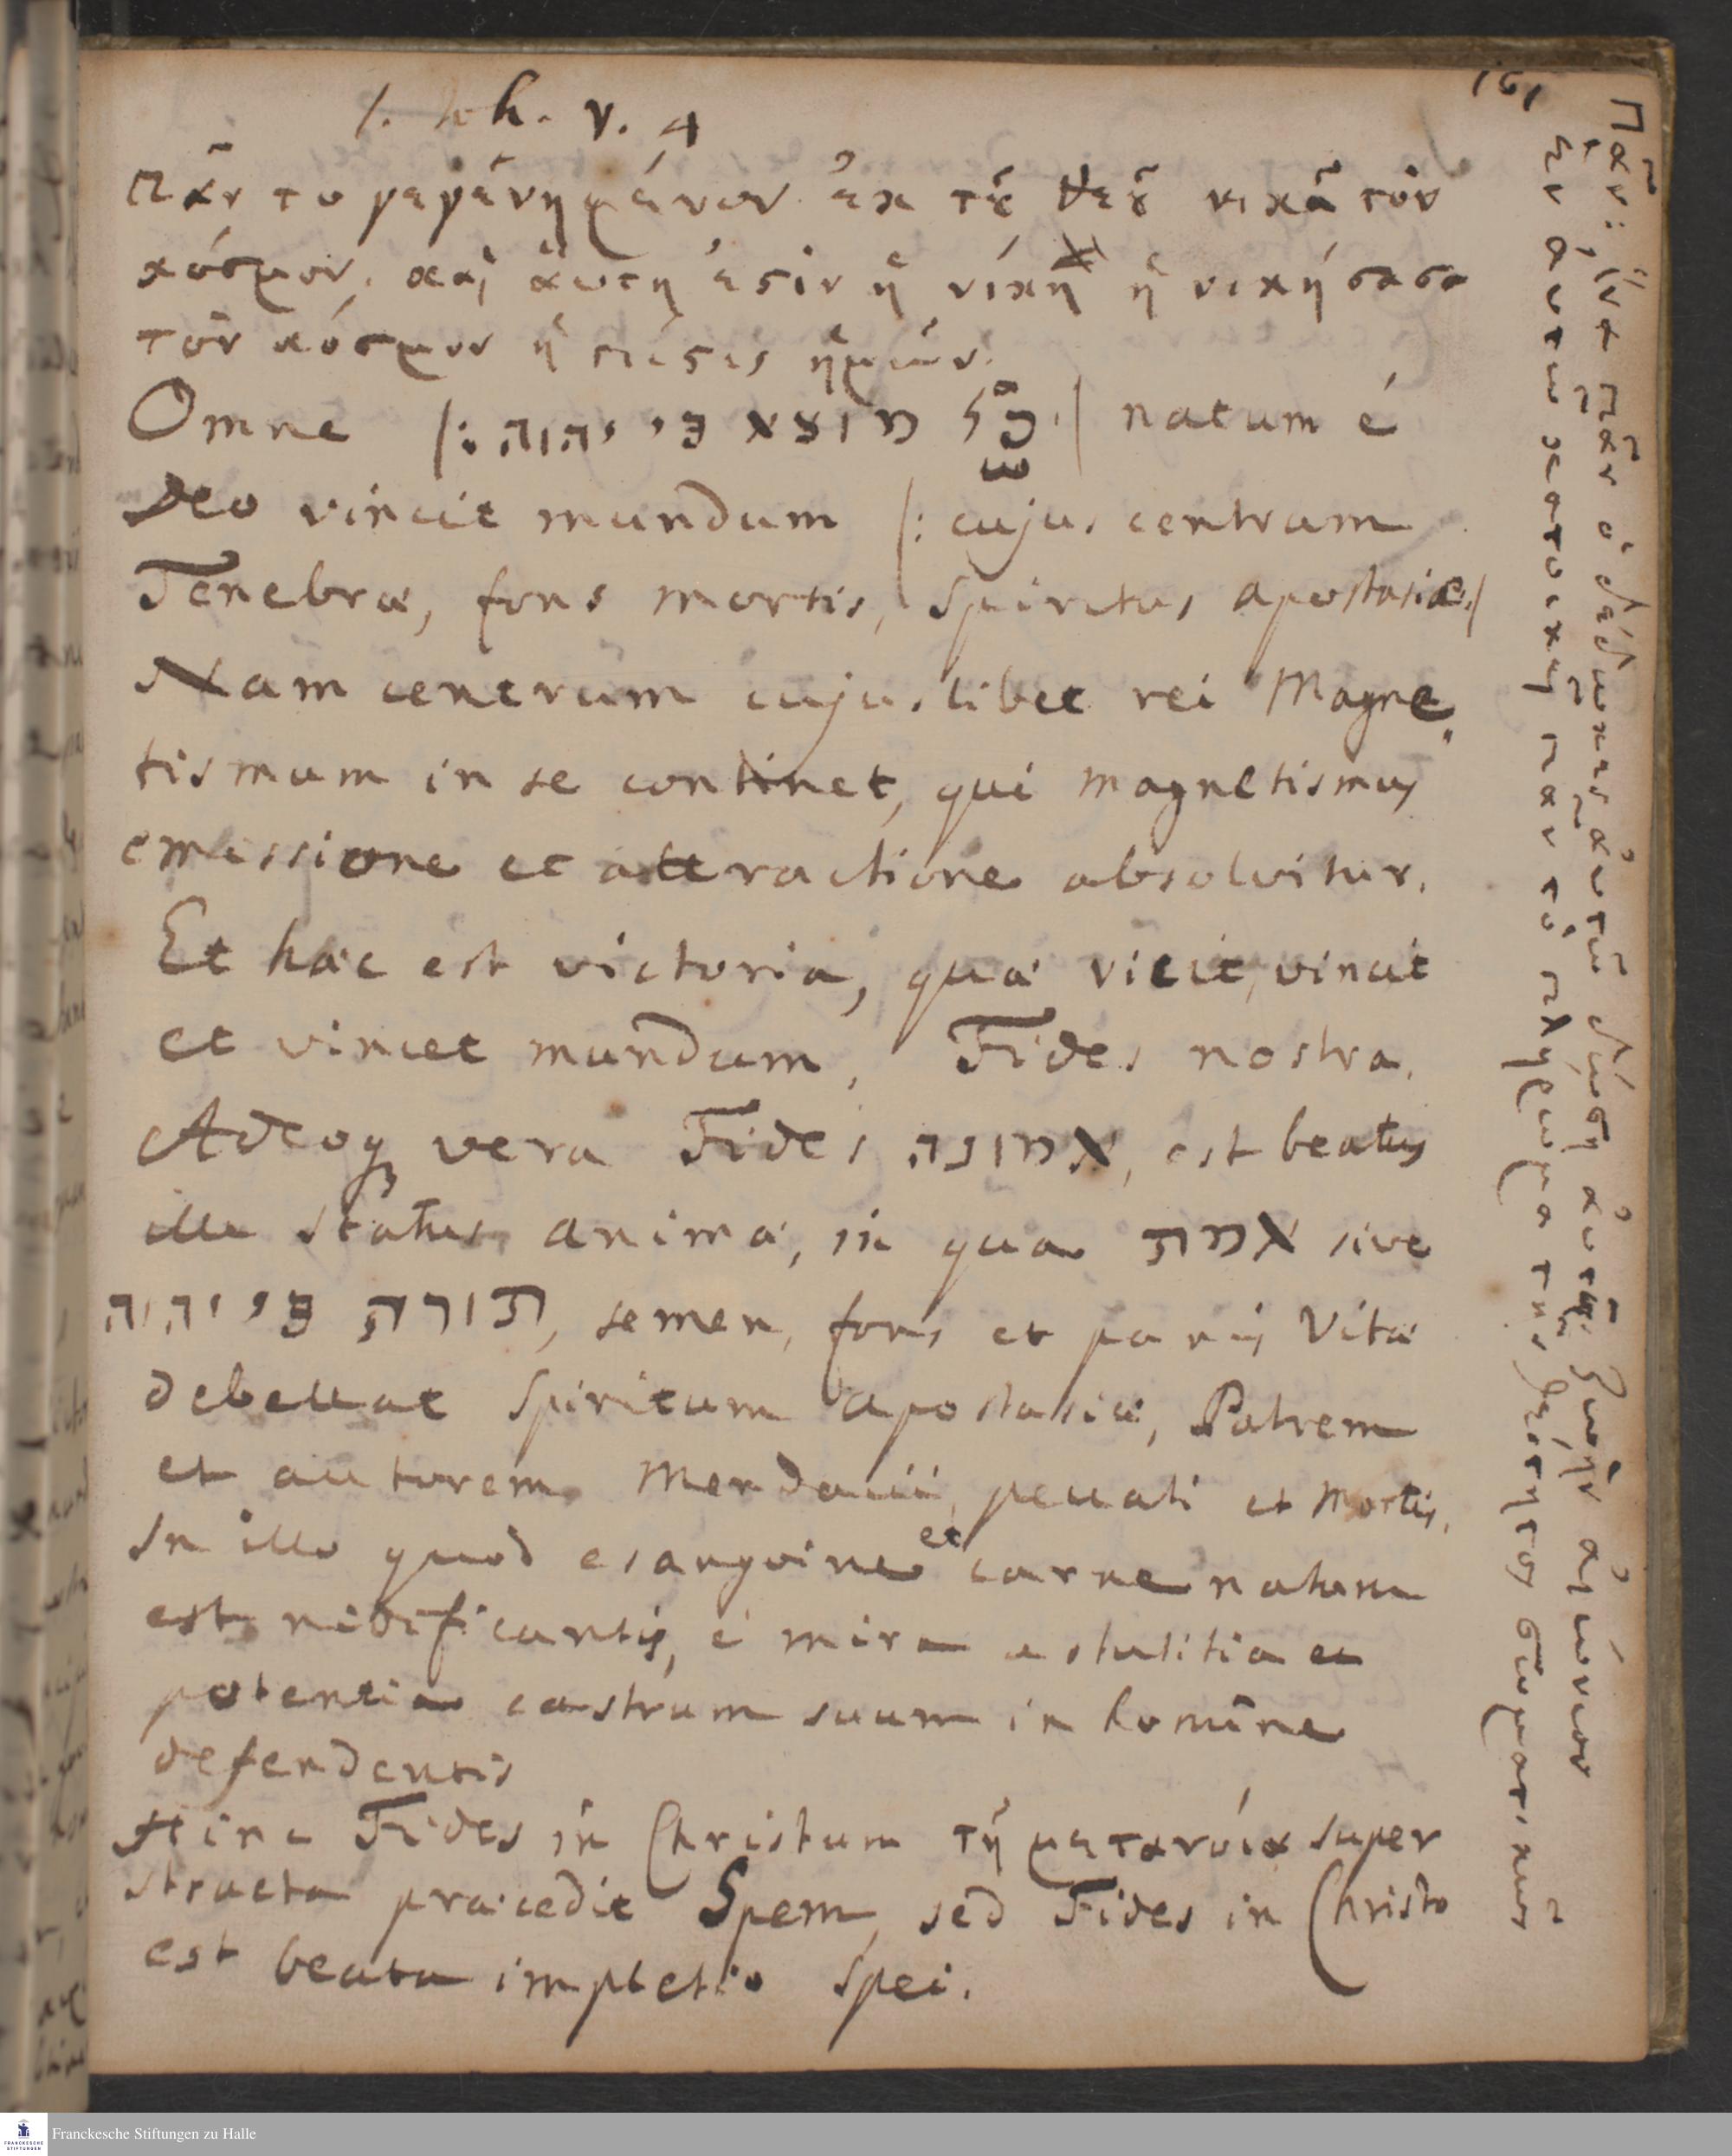 161
1. Joh. v. 4
Πᾶν το γεγένημένον ἐκ τȣ͂ θεȣ͂ νικᾶ τὸν
κόσμον, καὶ ἅυτη ἐςὶν ἡ νίκη ἡ νικήσασα
τὸν κόσμον ἡ πίςις ἡμῶν.
Omne /: כָּל מוצא פי יהוה :/ natum é
Deo vincit mundum /: cujus centrum
Tenebræ, fons mortis, Spiritus apostasiæ:/
Nam centrum cujuslibet rei Magne-
tismum in se continet, qui magnetismus
emissione et attractione absolvitur.
Et hæc est victoria, quæ vicit, vincit
et vincet mundum, Fides nostra.
Adeoq vera Fides אמונה, est beatus
ille status animæ, in qua אמת sive
תורה פי יהוה, semen, fons et panis Vitæ
debellat Spiritum apostasiæ, Patrem
et autorem Mendacii, peccati et Mortis,
In illo quod e sanguine et carne natum
est nidificantis, é mira astutitia et
potentia castrum suum in homine
defendentis
Hinc Fides in Christum τῇ μετανοία super
structa præcedit Spem, sed Fides in Christo
est beata impletio Spei.
Πᾶν: ἵνα πᾶν ὁ δέδωκας ἀυτῶ δώση ἀυτοῖς ζωὴν ἀιώνιον
ἐν ἀυτῶ κατοικεῖ παν τὸ πλήρωμα τῆς θεότητος σωματικῶς